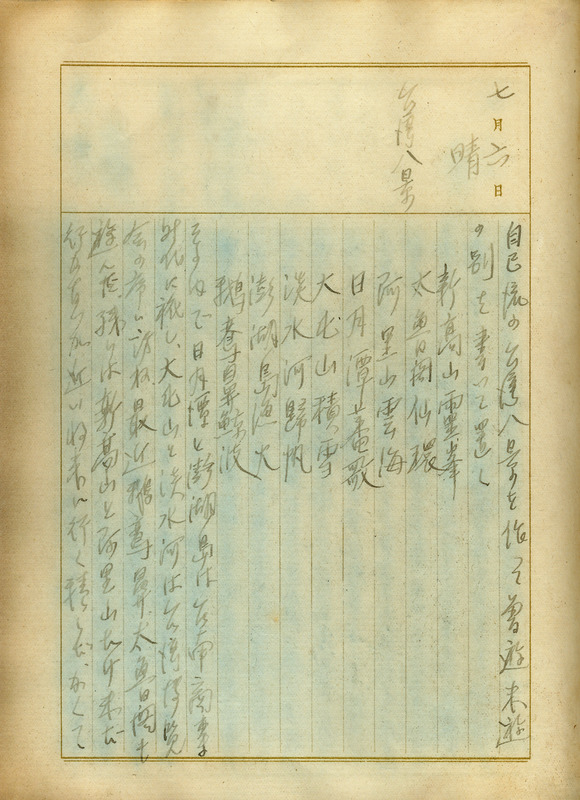 七月六日
晴
台湾八景
自己流の台湾八景を作って曽遊未遊
の別を書いて置く
新高山霊峯
太魯閣仙環
阿里山雲海
日月潭蕃歌
大屯山積雪
淡水河歸帆
澎湖島漁火
鵝鸞鼻鯨波
その内で日月潭と澎湖島は台南商専
時代に 大屯山と淡水河は台湾博覧
会の序に訪ね最近鵝鸞鼻、太魯閣も
遊んだ 残りは新高山と阿里山だけ未だ
行かない が近い将来に行く積だ かくて